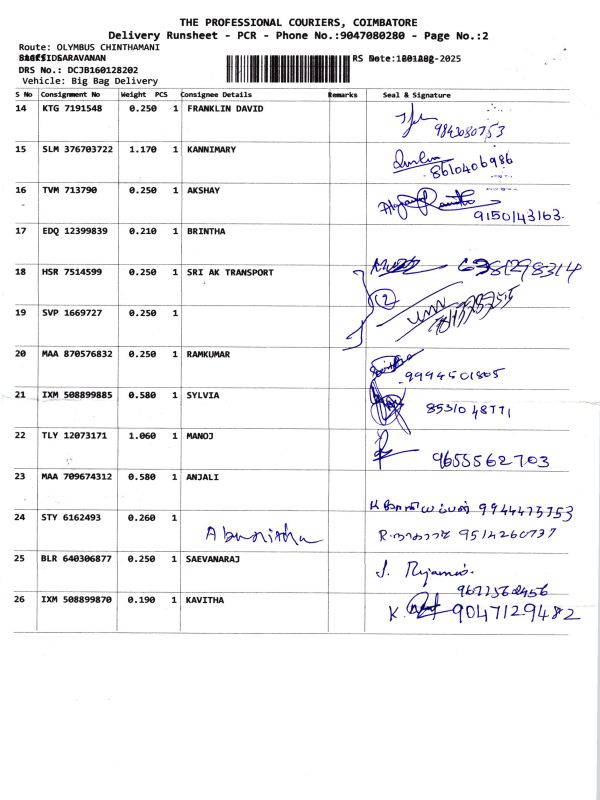 THE PROFESSIONAL COURIERS, COIMBATORE
Delivery Runsheet - PCR - Phone No.:9047080280 - Page No.:2
Route: OLYMBUS CHINTHAMANI
SARAVANAN
DRS No.: DCJB160128202
Vehicle: Big Bag Delivery
S No Consignment No Weight PCS Consignee Details Remarks Seal & Signature
14 KTG 7191548 0.250 1 FRANKLIN DAVID
15 SLM 376703722 1.170 1 KANNIMARY
8610406986
16 TVM 713790 0.250 1 AKSHAY
9150143163
17 EDQ 12399839 0.210 1 BRINTHA
18 HSR 7514599 0.250 1 SRI AK TRANSPORT
6381298314
(2)
19 SVP 1669727 0.250 1
20 MAA 870576832 0.250 1 RAMKUMAR
9994501805
21 IXM 508899885 0.580 1 SYLVIA
8531048771
22 TLY 12073171 1.060 1 MANOJ
9655562703
23 MAA 709674312 0.580 1 ANJALI
9944473753
24 STY 6162493 0.260 1
9514260737
25 BLR 640306877 0.250 1 SAEVANARAJ
26 IXM 508899870 0.190 1 KAVITHA
K. 9047129482